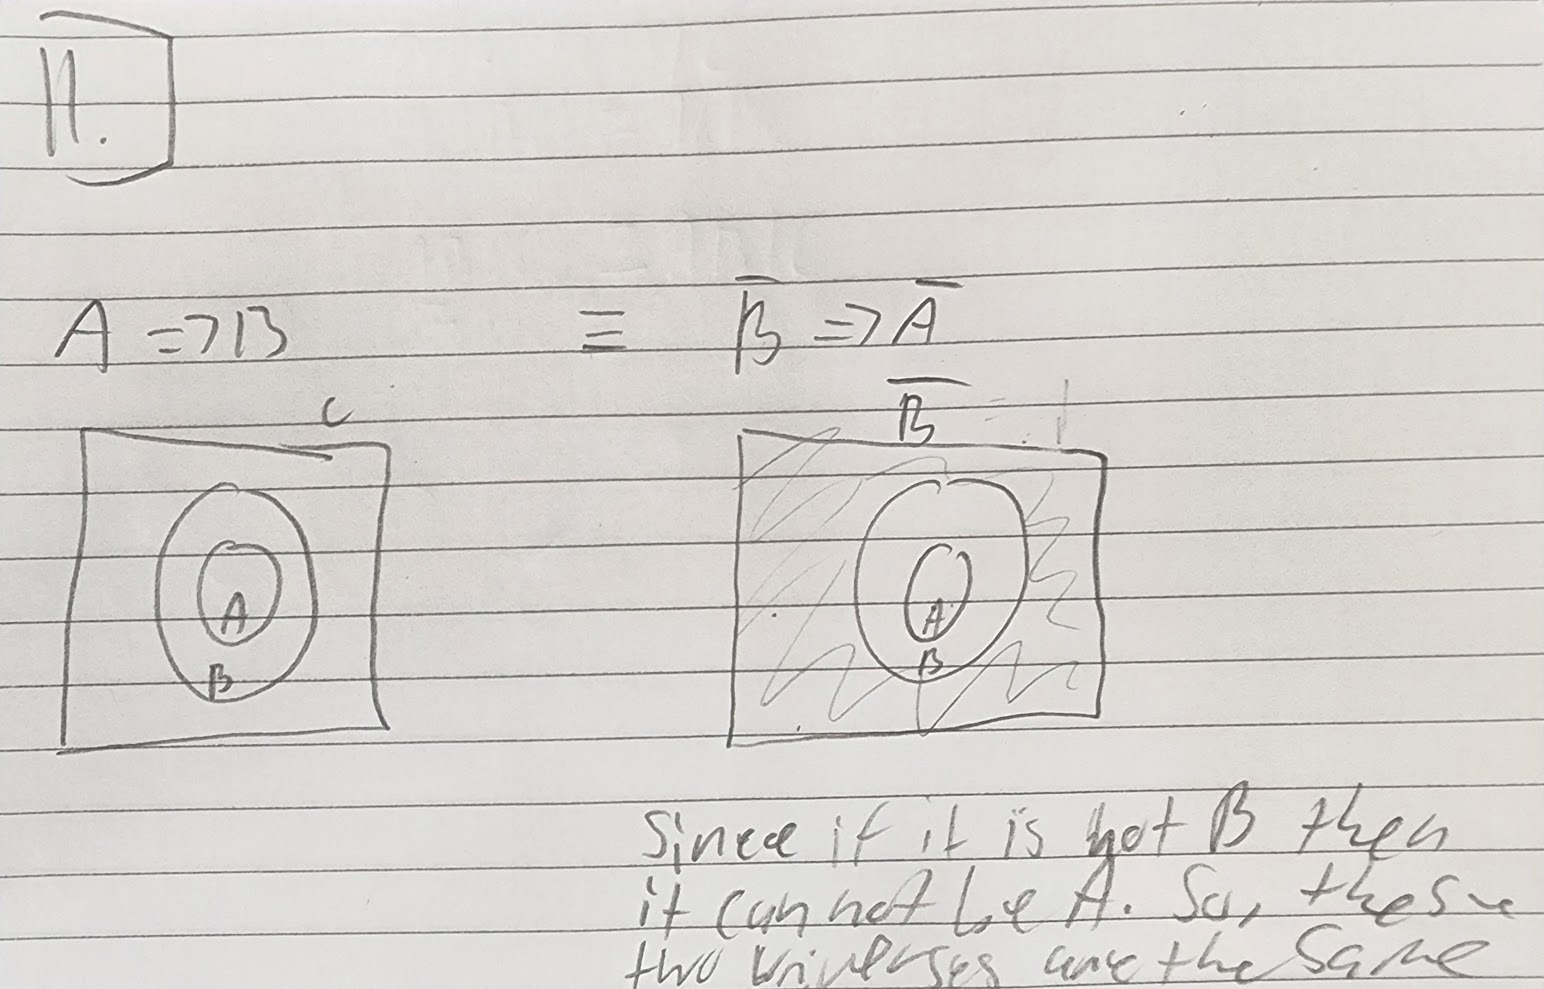 11.
A => B ≡ B̅ => A̅
U
B̅
A
B
A
B
Since if it is not B then
it cannot be A. So, these
two universes are the same